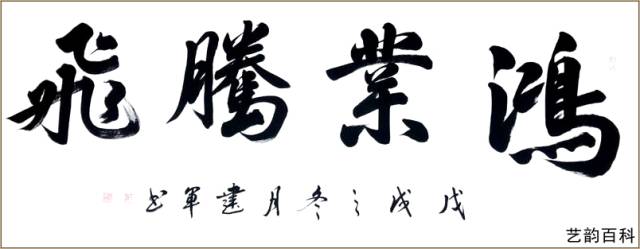 鴻業騰飛
戊戌之冬月建軍书
艺韵百科